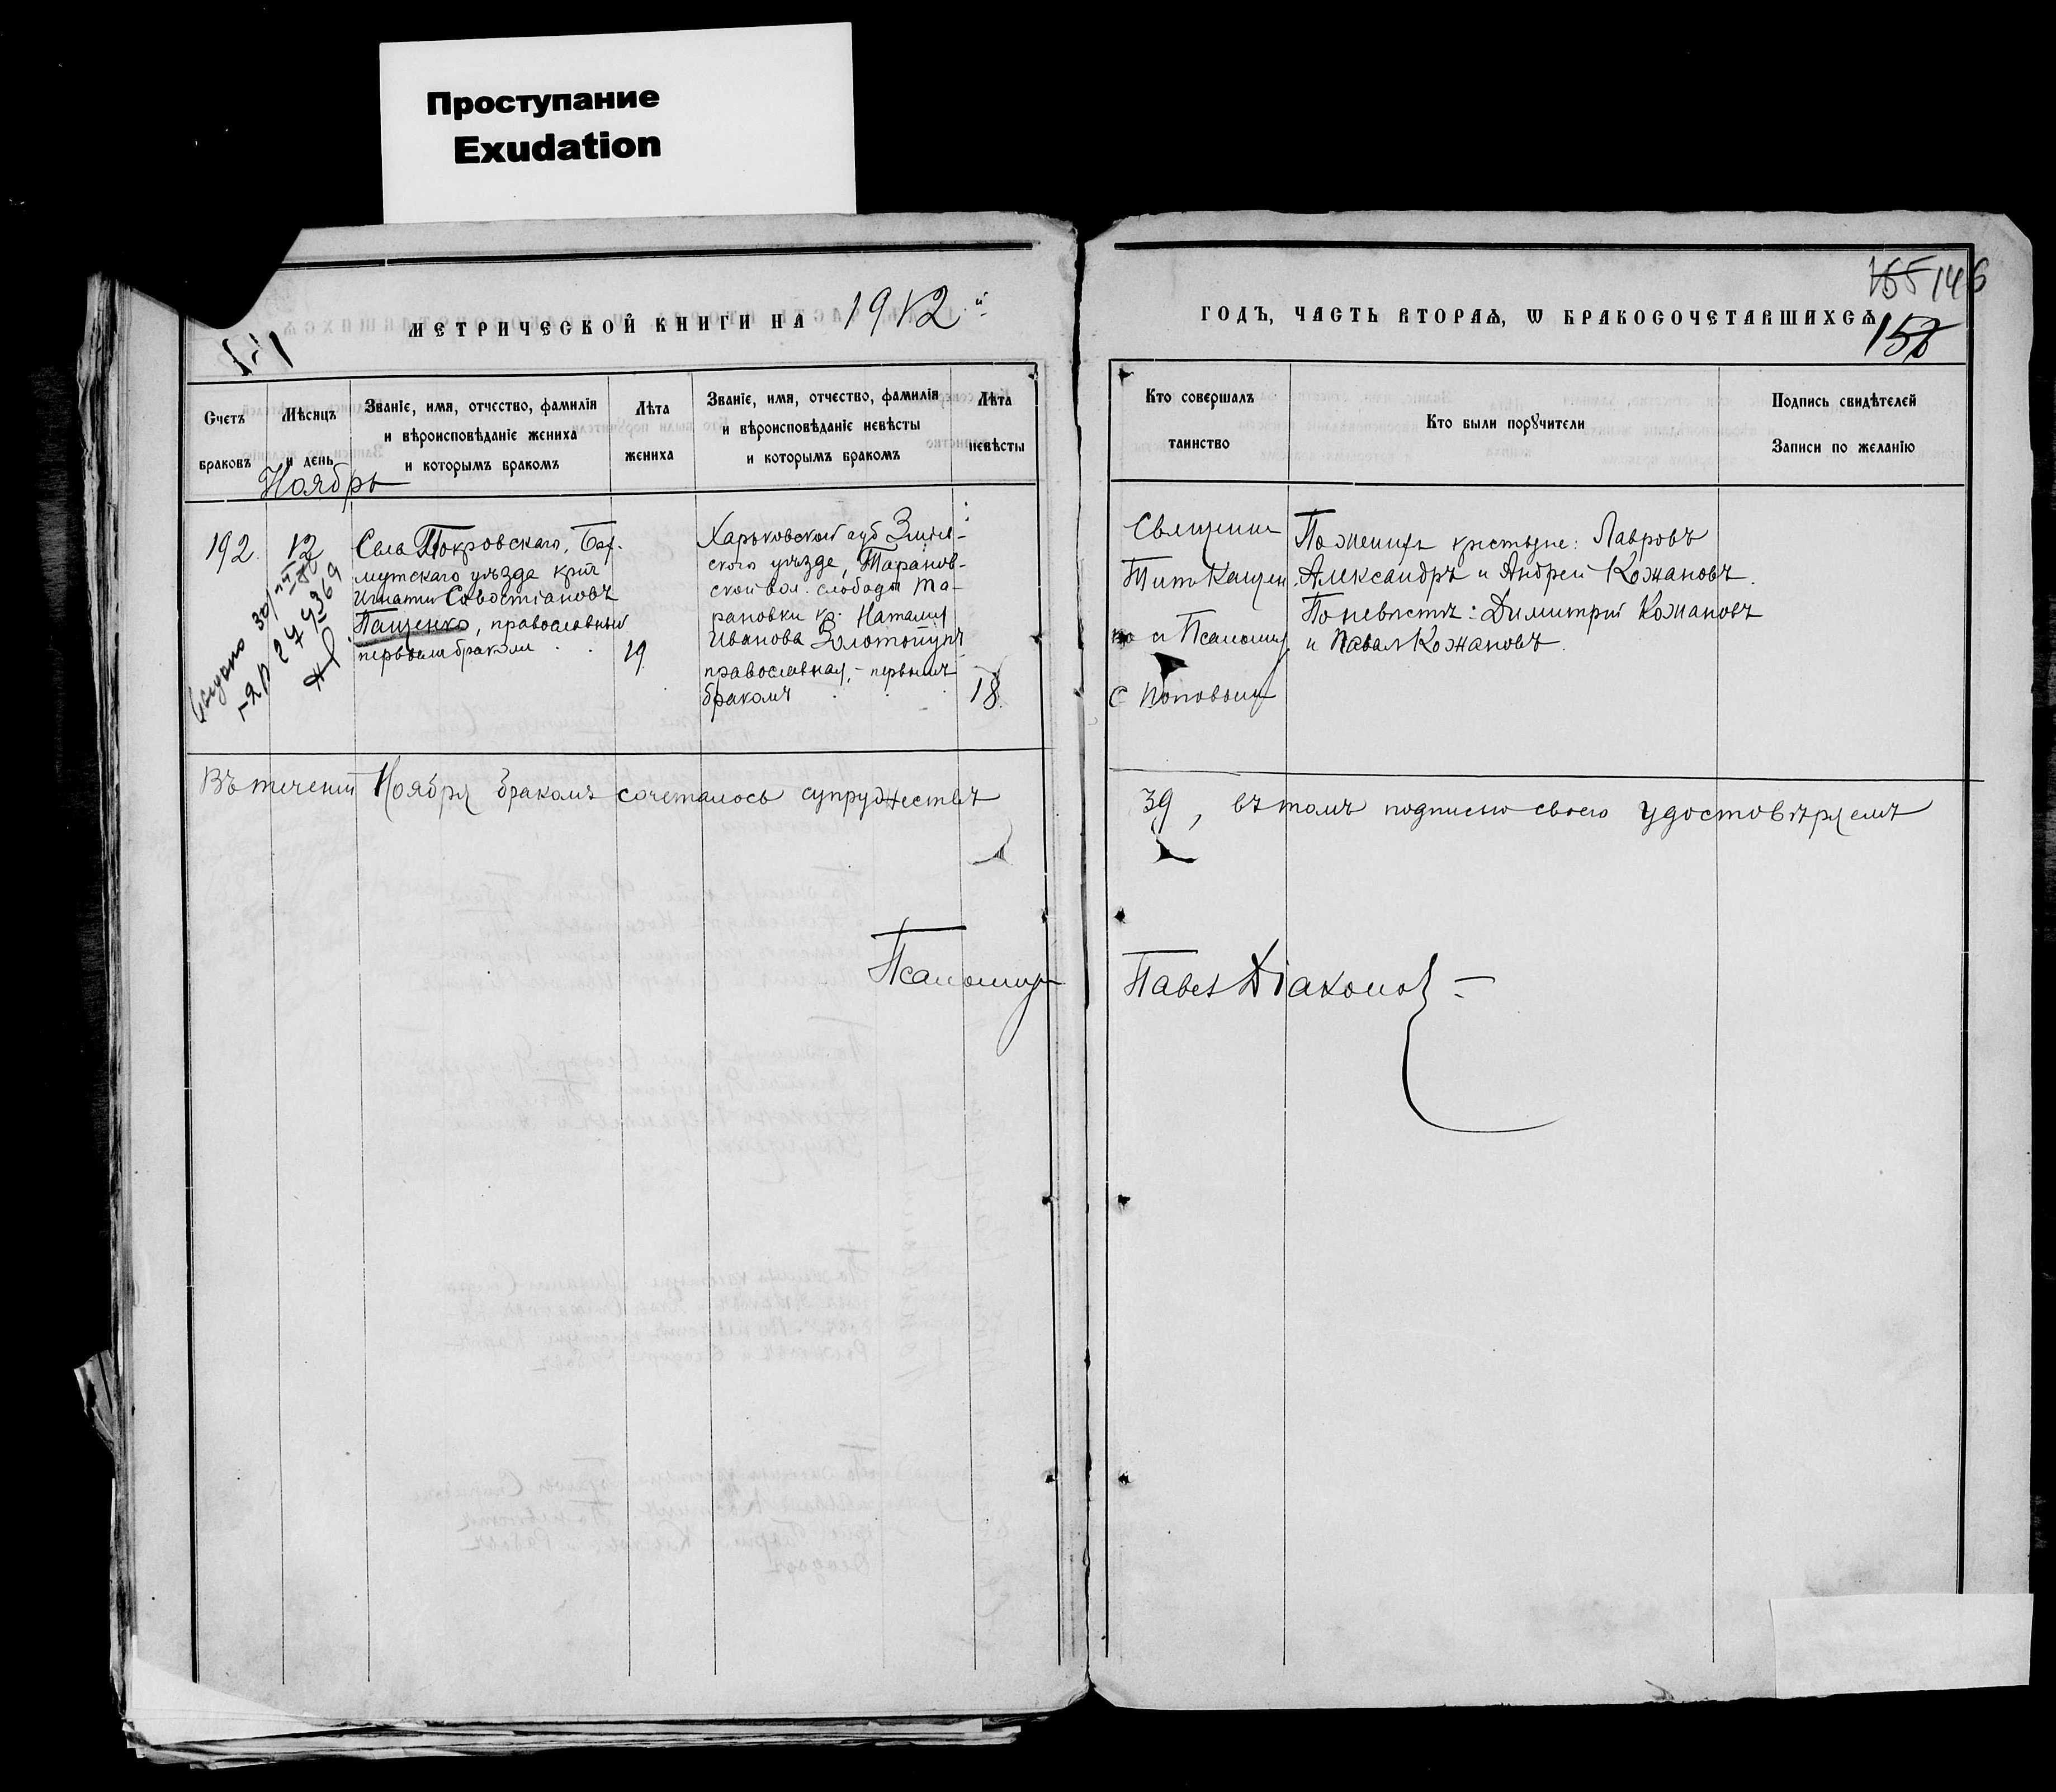 Проступание
Exudation
МЕТРИЧЕСКОЙ КНИГИ НА 1912 й
Счетъ браковъ
Мѣсяцъ и день
Званіе, имя, отчество, фамилія
и вѣроисповѣданіе жениха
и которымъ бракомъ
Лѣта
жениха
Званіе, имя, отчество, фамилія
и вѣроисповѣданіе невѣсты
и которымъ бракомъ
Лѣта
невѣсты
Ноябрь
192.
12
Села Покровскаго, Бах-
мутскаго уѣзда
Игнатій Савостіановъ
Пащенко, православный
первымъ бракомъ
19
Харьковской губ Зміев-
ского уѣзда, Таранов-
ской вол. слободы Та-
рановки кр. Наталія
Иванова
православная, - первымъ
бракомъ
18.
Въ теченіи Ноября бракомъ сочеталось супружествъ
Псаломщ
155 146
ГОДЪ, ЧАСТЬ ВТОРАЯ, Ѡ БРАКОСОЧЕТАВШИХСЯ
158
Кто совершалъ
таинство
Кто были порꙋчители
Подпись свидѣтелей
Записи по желанію
Священни
Титъ
и Псаломщ
с Поповымъ
По женихѣ крестьяне: Лавровъ
Александръ и Андрей Кожановъ.
По невѣстѣ: Димитрій Кожановъ
и Павелъ Кожановъ.
39, въ томъ подписью своею удостовѣряемъ
Павел Діаконов